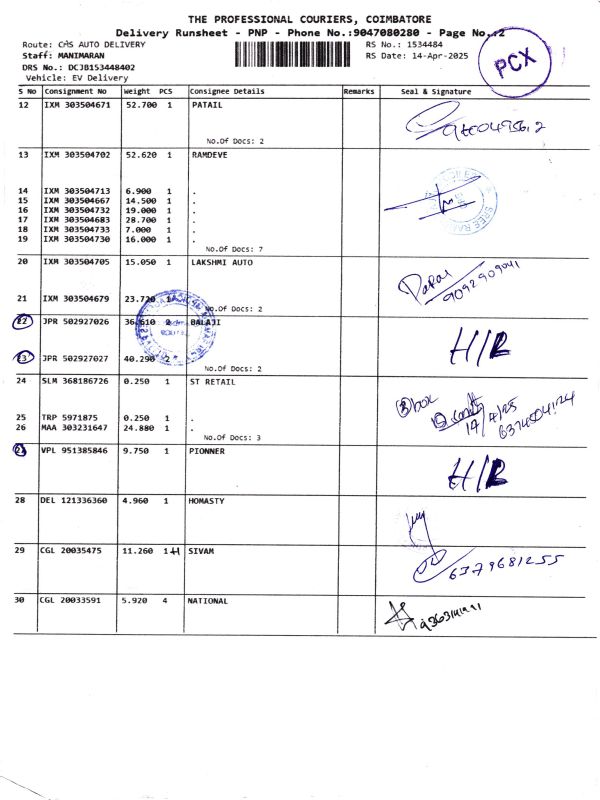 THE PROFESSIONAL COURIERS, COIMBATORE
Delivery Runsheet - PNP - Phone No.:9047080280 - Page No.:2
Route: CAS AUTO DELIVERY RS No.: 1534484
Staff: MANIMARAN RS Date: 14-Apr-2025
PCX
DRS No.: DCJB153448402
Vehicle: EV Delivery
S No Consignment No Weight PCS Consignee Details Remarks Seal & Signature
12 IXM 303504671 52.700 1 PATAIL
No.Of Docs: 2
13 IXM 303504702 52.620 1 RAMDEVE
14 IXM 303504713 6.900 1 .
15 IXM 303504667 14.500 1 .
16 IXM 303504732 19.000 1 .
17 IXM 303504683 28.700 1 .
18 IXM 303504733 7.000 1 .
19 IXM 303504730 16.000 1 .
No.Of Docs: 7
20 IXM 303504705 15.050 1 LAKSHMI AUTO
9092909041
21 IXM 303504679 23.720 1 .
No.Of Docs: 2
22 JPR 502927026 36.610 2 BALAJI
H/R
23 JPR 502927027 40.290 2
No.Of Docs: 2
24 SLM 368186726 0.250 1 ST RETAIL
3 box
14/4/25
6374504124
25 TRP 5971875 0.250 1 .
26 MAA 303231647 24.880 1 .
No.Of Docs: 3
VPL 951385846 9.750 1 PIONNER
H/R
28 DEL 121336360 4.960 1 HOMASTY
29 CGL 20035475 11.260 1 SIVAM
6379681255
30 CGL 20033591 5.920 4 NATIONAL